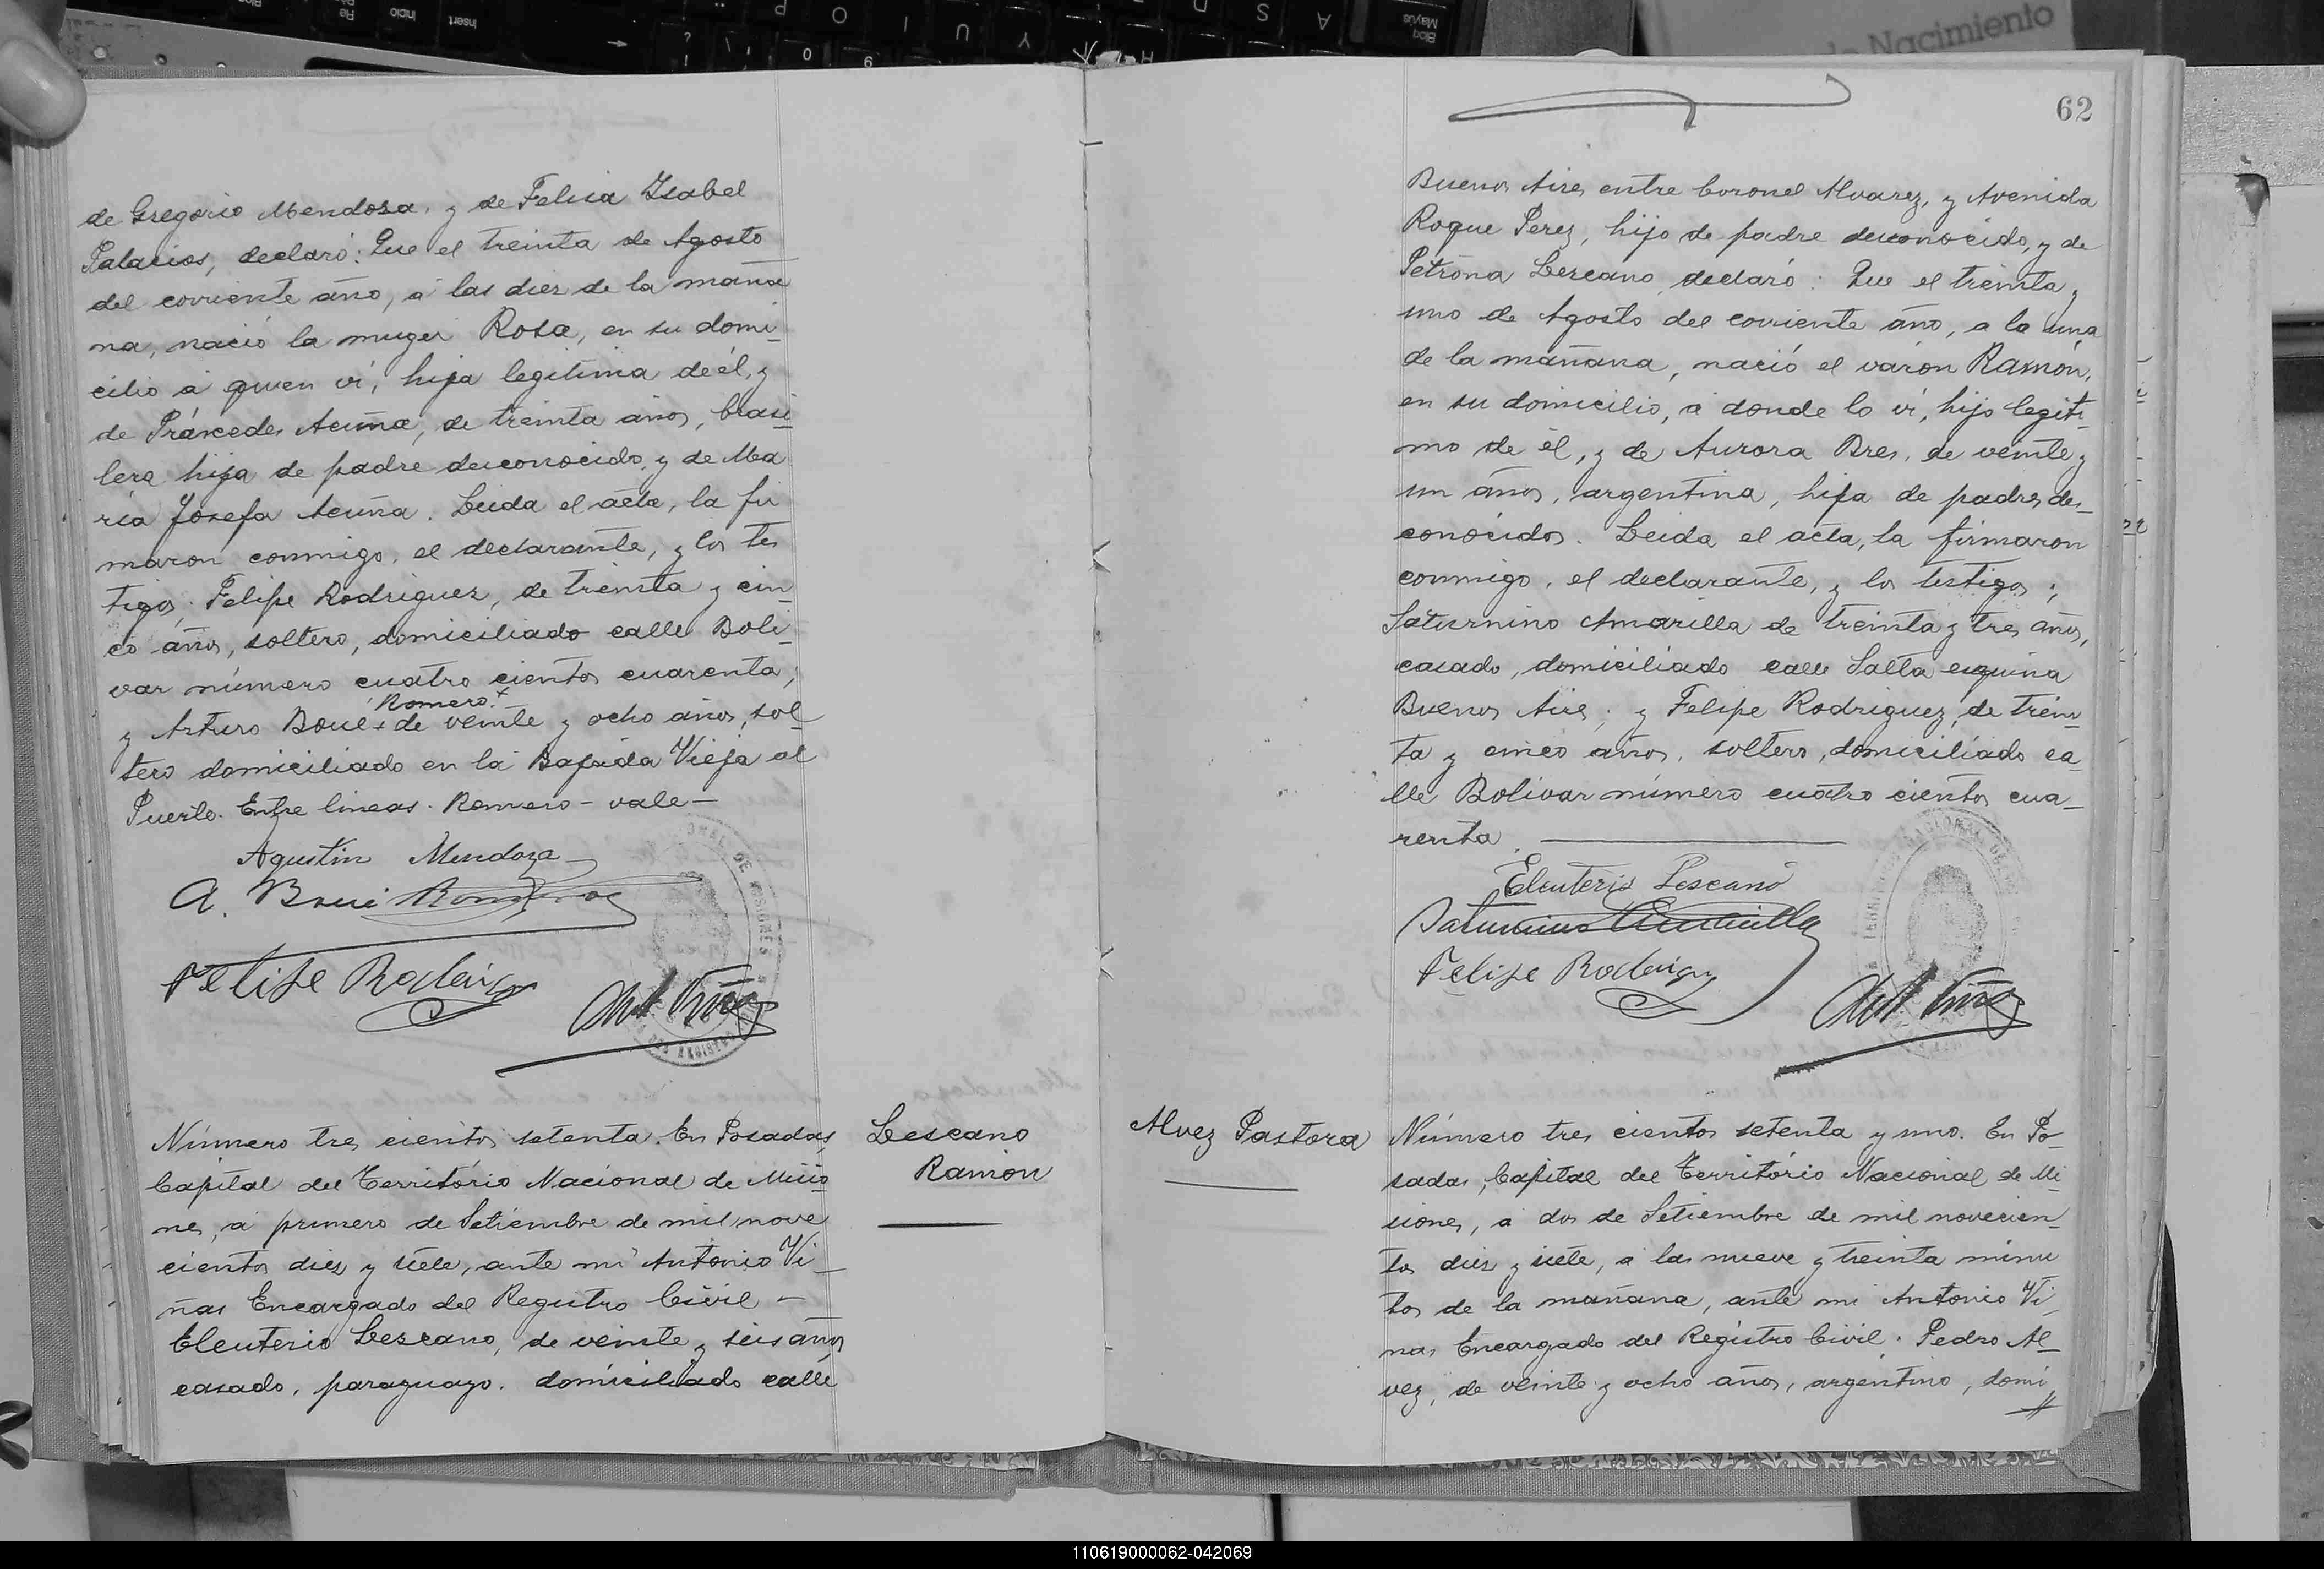 de Gregorio Mendosa, y de Felisa Isabel
Palacios, declaró: Que el treinta de Agosto
del corriente año, a las diez de la maña
na, nació la muger Rosa, en su domi-
cilio a quien vi, hija legitima de él, y
de Práxedes Acuña, de treinta años, brasi
lera hija de padre desconocido, y de Ma
ría Josefa Acuña. Leida el acta, la fir
maron conmigo, el declarante, y los tes
tigos; Felipe Rodriguez, de treinta y cin-
co años, soltero, domiciliado calle Boli-
var número cuatro cientos cuarenta;
Romero
y Arturo Boué de veinte y ocho años, sol
tero domiciliado en la Bajada Vieja al
Puerto. Entre lineas. Romero - vale -
Agustin Mendoza
A. Boué Romero
Felipe Rodriguez
Número tres cientos setenta. En Posadas
Capital del Território Nacional de Misio
nes, a primero de Setiembre de mil nove
cientos diez y siete, ante mi Antonio Vi-
ñas Encargado del Registro Civil -
Eleuterio Lezcano, de veinte y seis años
casado, paraguayo, domiciliado calle
Lescano
Ramón
62
Buenos Aires entre Coronel Alvarez, y Avenida
Roque Perez, hijo de padre desconocido, y de
Petrona Lezcano, declaró: Que el treinta y
uno de Agosto del corriente año, a la una
de la mañana, nació el varon Ramón,
en su domicilio, a donde lo vi, hijo legiti-
mo de él, y de Aurora Bres, de veinte y
un años, argentina, hija de padres des-
conocidos. Leida el acta, la firmaron
conmigo, el declarante, y los testigos;
Saturnino Amarilla de treinta y tres años,
casado, domiciliado calle Salta esquina
Buenos Aires; y Felipe Rodriguez, de trein-
ta y cinco años, soltero, domiciliado ca-
lle Bolivar número cuatro cientos cua-
renta.
Eleuterio Lescano
Saturnino Amarilla
Felipe Rodriguez
Alvez Pastora
Número tres cientos setenta y uno. En Po-
sadas, Capital del Território Nacional de Mi
siones, a dos de Setiembre de mil novecien-
tos diez y siete, a las nueve y treinta minu
tos de la mañana, ante mi Antonio Vi
nas Encargado del Registro Civil. Pedro Al-
vez, de veinte y ocho años, argentino, domi
110619000062-042069